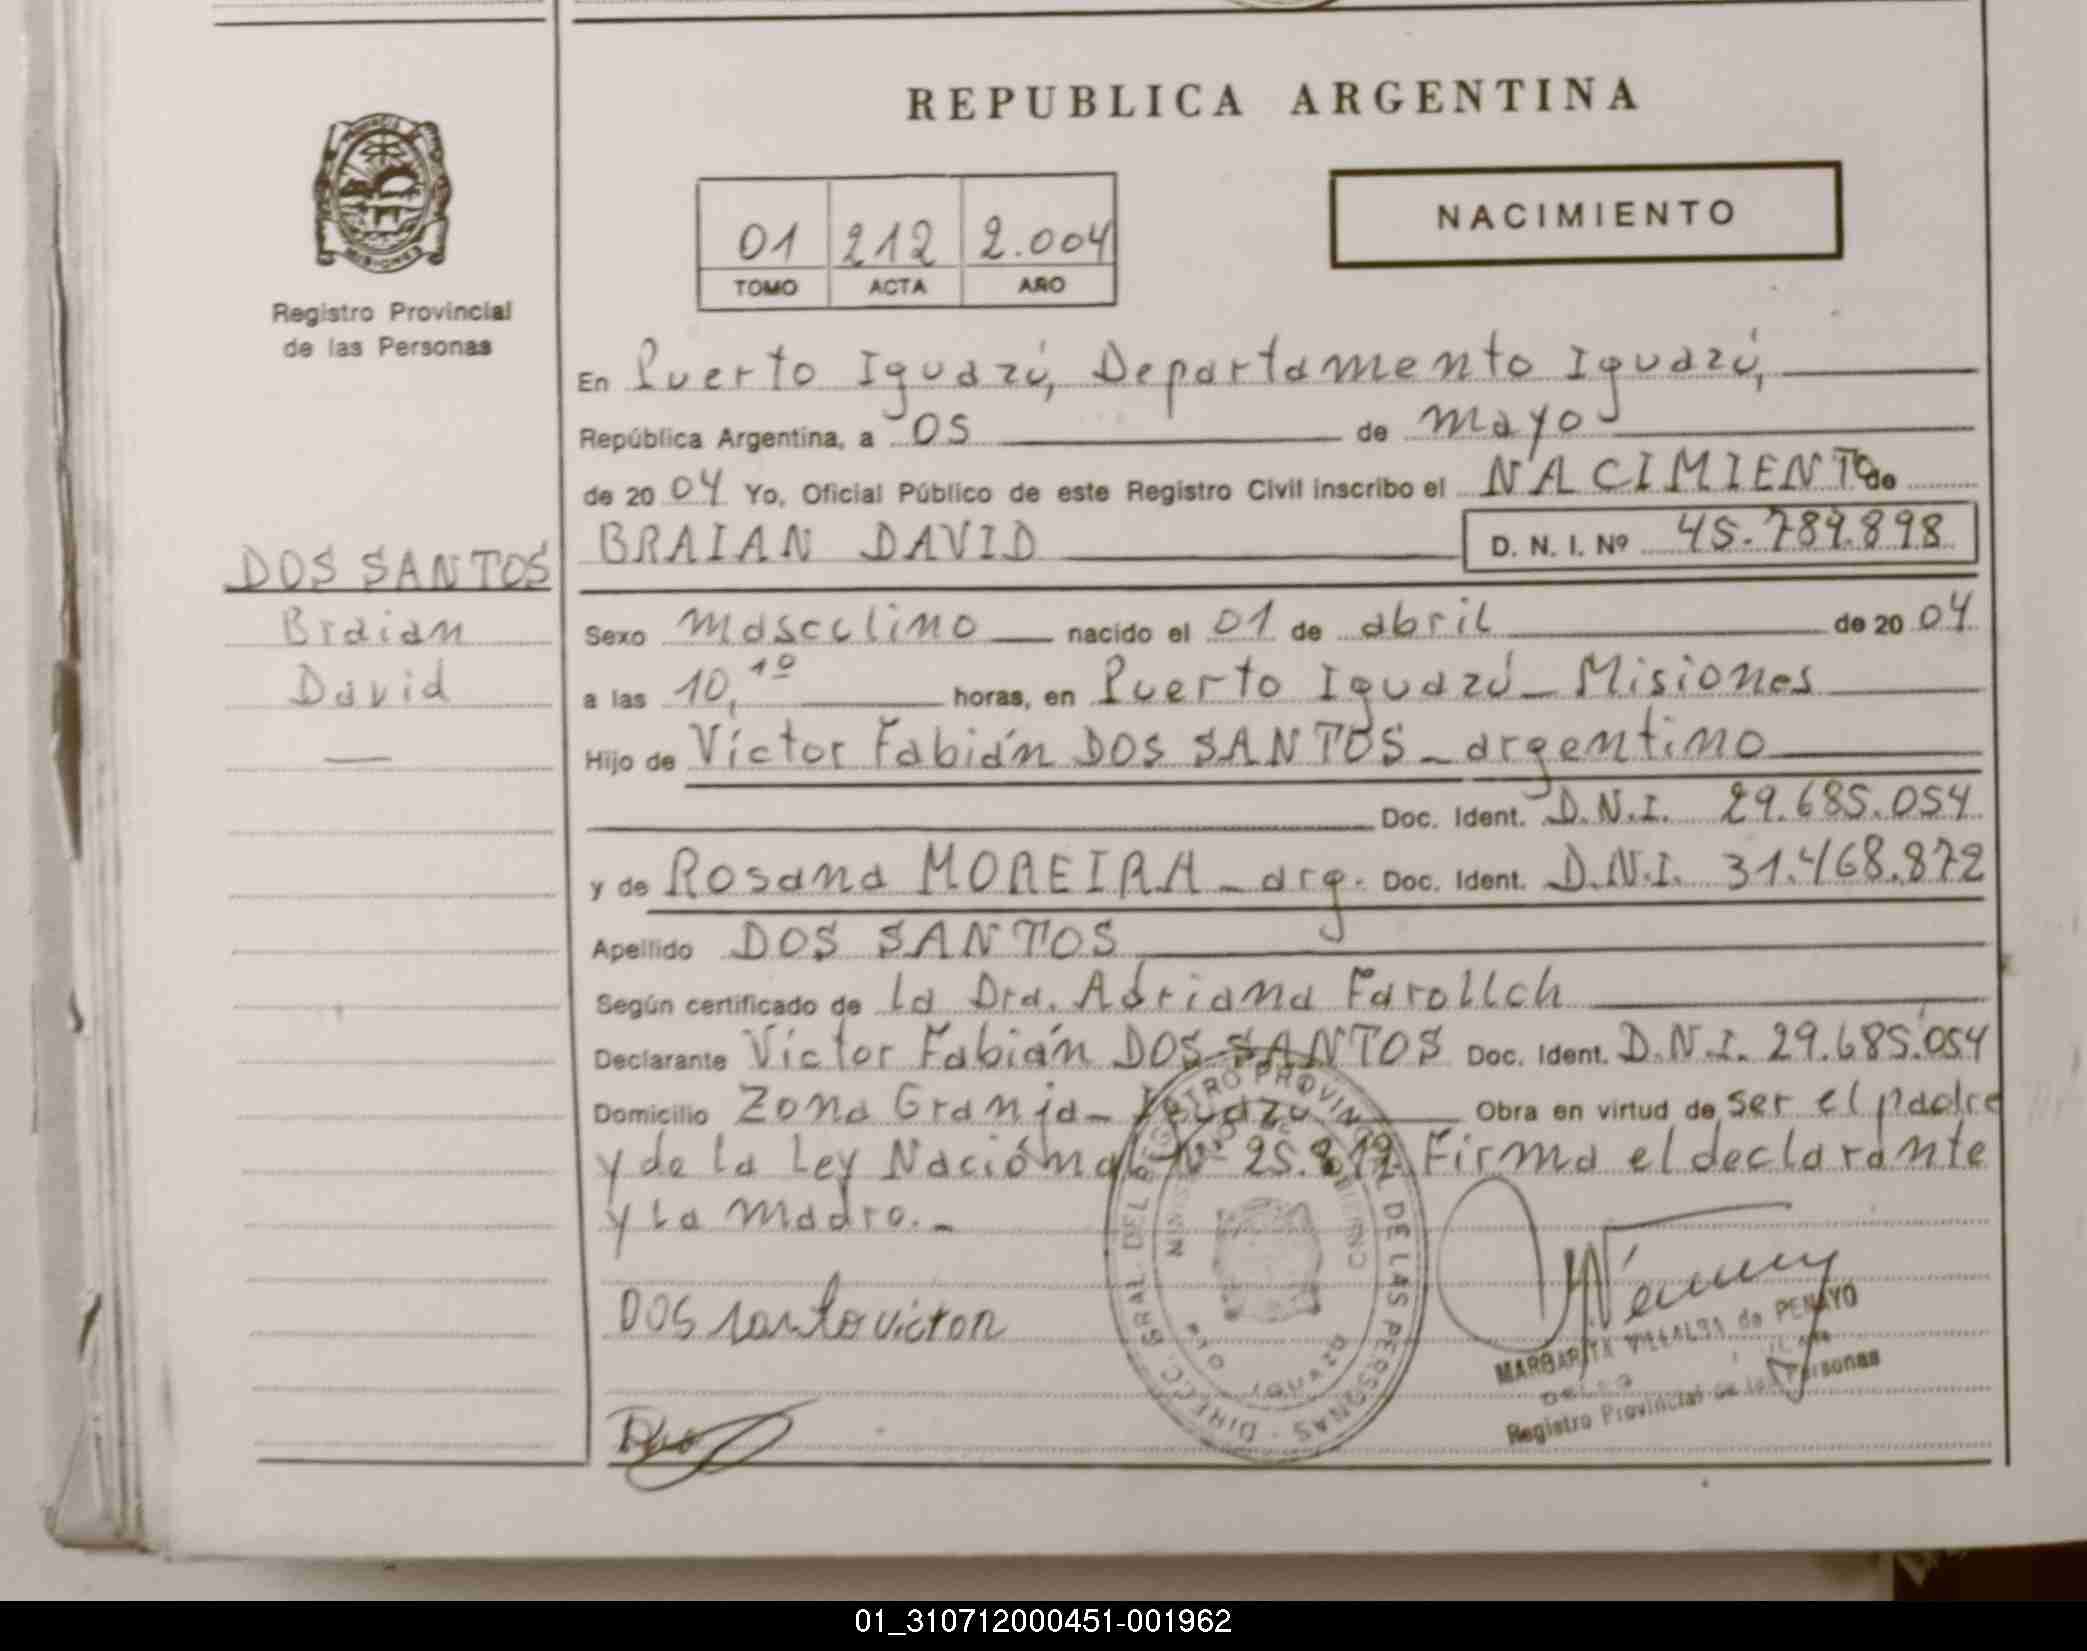 REPUBLICA ARGENTINA
NACIMIENTO
01 212 2.004
TOMO ACTA AÑO
Registro Provincial
de las Personas
En Puerto Iguazú, Departamento Iguazú,
República Argentina, a 05 de mayo
de 2004 Yo, Oficial Público de este Registro Civil inscribo el NACIMIENTO de
BRAIAN DAVID D. N. I. Nº 45.789.898
DOS SANTOS
Braian
David
Sexo masculino nacido el 01 de abril de 2004
a las 10,10 horas, en Puerto Iguazú - Misiones
Hijo de Víctor Fabián DOS SANTOS - argentino
Doc. Ident. D.N.I. 29.685.054
y de Rosana MOREIRA - arg. Doc. Ident. D.N.I. 31.468.872
Apellido DOS SANTOS
Según certificado de la Dra. Adriana Farollch
Declarante Víctor Fabián DOS SANTOS Doc. Ident. D.N.I. 29.685.054
Domicilio Zona Granja - Iguazú Obra en virtud de ser el padre
y de la Ley Nacional Nº 25.819. Firma el declarante
y la madre. -
DOS santo victor
DIRECC. GRAL. DEL REGISTRO PROVINCIAL DE LAS PERSONAS
MARGARITA VILLALBA de PENAYO
Registro Provincial de las Personas
01_310712000451-001962